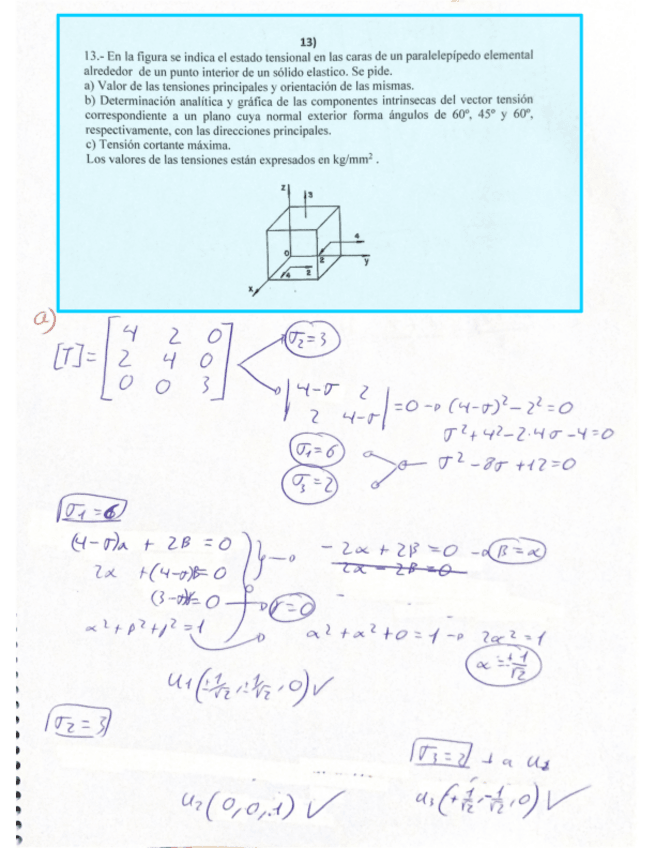 13)
13.- En la figura se indica el estado tensional en las caras de un paralelepípedo elemental
alrededor de un punto interior de un sólido elastico. Se pide.
a) Valor de las tensiones principales y orientación de las mismas.
b) Determinación analítica y gráfica de las componentes intrinsecas del vector tensión
correspondiente a un plano cuya normal exterior forma ángulos de 60º, 45º y 60º,
respectivamente, con las direcciones principales.
c) Tensión cortante máxima.
Los valores de las tensiones están expresados en kg/mm² .
z 3
4
0 2 y
4 2
x
a)
[T]= [4 2 0
2 4 0
0 0 3]
σ2=3
|4-σ 2
2 4-σ| =0 → (4-σ)²-2²=0
σ²+4²-2·4σ-4=0
σ1=6
σ²-8σ+12=0
σ3=2
σ1=6
(4-σ)α + 2β = 0
-2α+2β=0 → β=α
2α +(4-σ)β=0
2α-2β=0
(3-σ)γ=0 → γ=0
α²+β²+γ²=1
α²+α²+0=1 → 2α²=1
α=±1/√2
u1(±1/√2,±1/√2,0)✓
σ2=3
σ3=2 ⊥ a u1
u2(0,0,1)✓
u3(+1/√2,-1/√2,0)✓